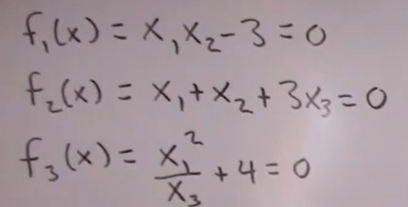 f₁(x) = x₁x₂ - 3 = 0
f₂(x) = x₁ + x₂ + 3x₃ = 0
f₃(x) = x₁²/x₃ + 4 = 0